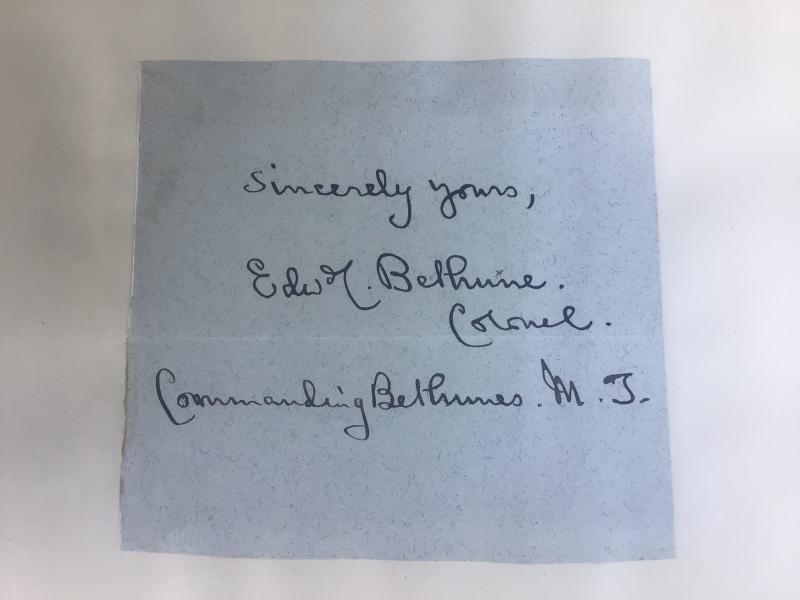 Sincerely yours,
Edw C. Bethune.
Colonel.
Commanding Bethunes. M. I.